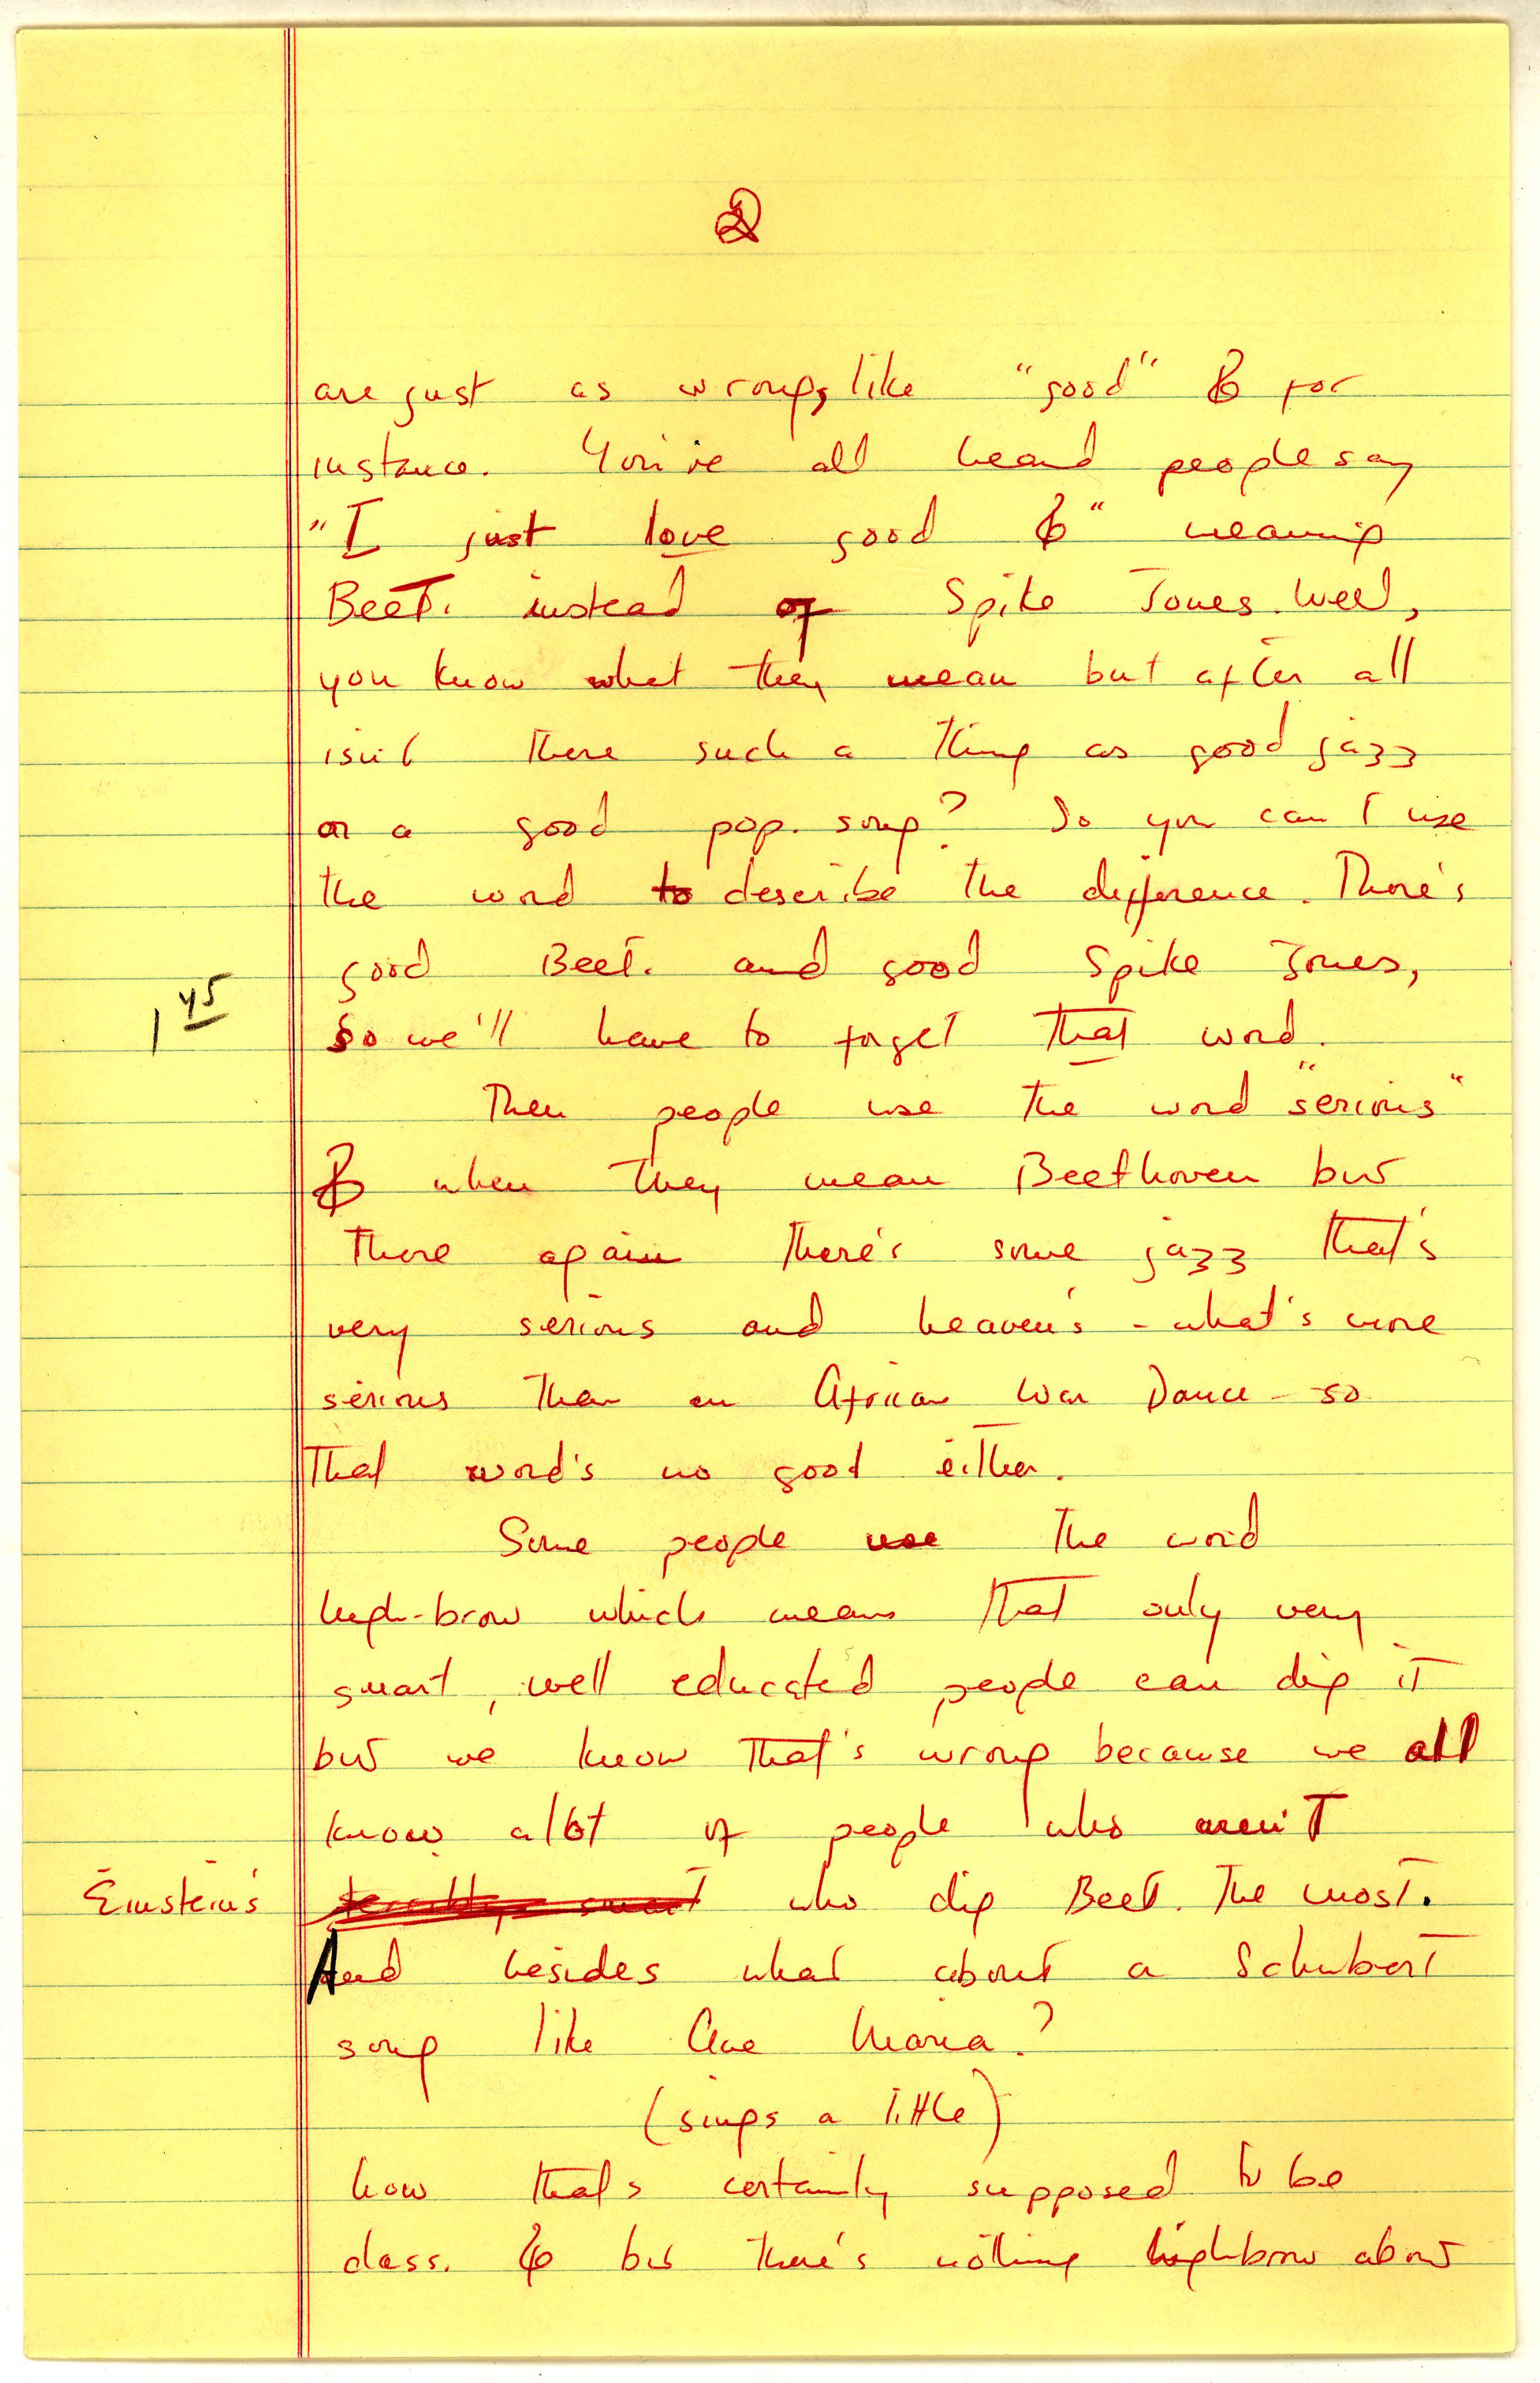 2
are just as wrong, like "good" for
instance. You've all heard people say
"I just love good " meaning
Beet. instead of Spike Jones. Well,
you know what they mean but after all
isn't there such a thing as good jazz
or a good pop. song? So you can't use
the word to describe the difference. There's
good Beet. and good Spike Jones,
1 45
so we'll have to forget that word.
Then people use the word "serious"
when they mean Beethoven but
there again there's some jazz that's
very serious and heaven's - what's more
serious than an African War Dance - so
that word's no good either.
Some people use the word
high-brow which means that only very
smart, well educated people can dig it
but we know that's wrong because we all
know a lot of people who aren't
Einstein's terribly smart who dig Beet. the most.
And besides what about a Schubert
song like Ave Maria?
(sings a little)
Now that's certainly supposed to be
class. but there's nothing highbrow about